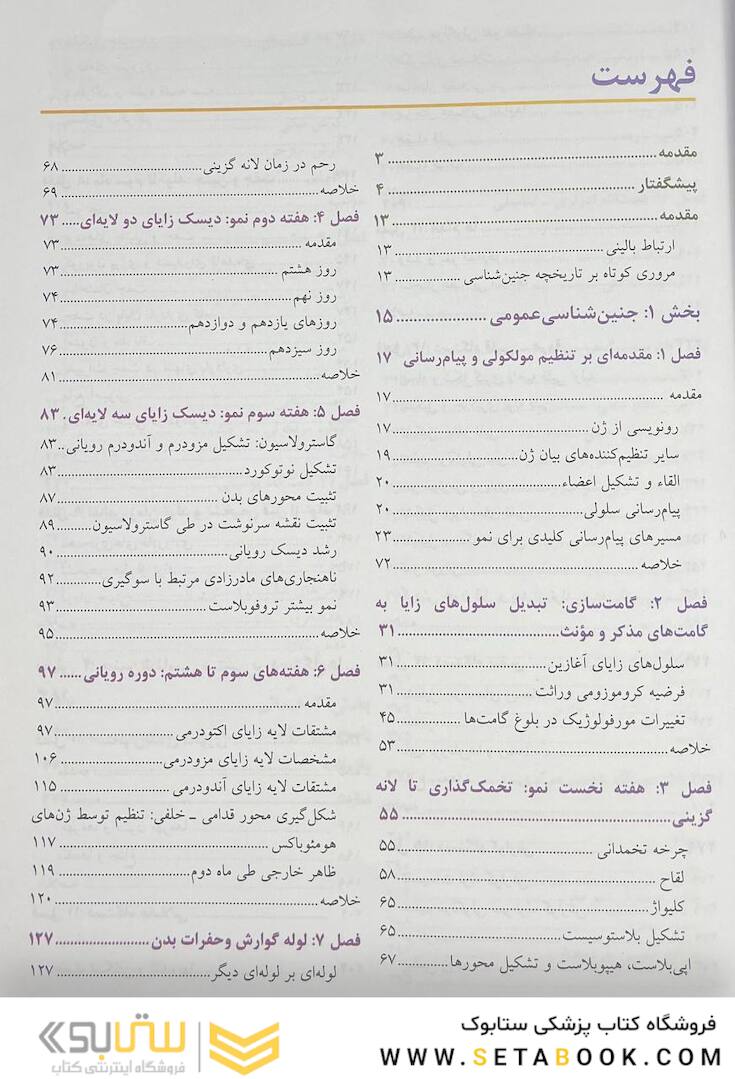 فهرست
مقدمه ۳
پیشگفتار ۴
مقدمه ۱۳
ارتباط بالینی ۱۳
مروری کوتاه بر تاریخچه جنین‌شناسی ۱۳
بخش ۱: جنین‌شناسی عمومی ۱۵
فصل ۱: مقدمه‌ای بر تنظیم مولکولی و پیام‌رسانی ۱۷
مقدمه ۱۷
رونویسی از ژن ۱۷
سایر تنظیم‌کننده‌های بیان ژن ۱۹
القاء و تشکیل اعضاء ۲۰
پیام‌رسانی سلولی ۲۰
مسیرهای پیام‌رسانی کلیدی برای نمو ۲۳
خلاصه ۷۲
فصل ۲: گامت‌سازی: تبدیل سلول‌های زایا به
گامت‌های مذکر و مؤنث ۳۱
سلول‌های زایای آغازین ۳۱
فرضیه کروموزومی وراثت ۳۱
تغییرات مورفولوژیک در بلوغ گامت‌ها ۴۵
خلاصه ۵۳
فصل ۳: هفته نخست نمو: تخمک‌گذاری تا لانه
گزینی ۵۵
چرخه تخمدانی ۵۵
لقاح ۵۸
کلیواژ ۶۵
تشکیل بلاستوسیست ۶۵
اپی‌بلاست، هیپوبلاست و تشکیل محورها ۶۷
رحم در زمان لانه گزینی ۶۸
خلاصه ۶۹
فصل ۴: هفته دوم نمو: دیسک زایای دو لایه‌ای ۷۳
مقدمه ۷۳
روز هشتم ۷۳
روز نهم ۷۴
روزهای یازدهم و دوازدهم ۷۴
روز سیزدهم ۷۶
خلاصه ۸۱
فصل ۵: هفته سوم نمو: دیسک زایای سه لایه‌ای ۸۳
گاسترولاسیون: تشکیل مزودرم و آندودرم رویانی ۸۳
تشکیل نوتوکورد ۸۳
تثبیت محورهای بدن ۸۷
تثبیت نقشه سرنوشت در طی گاسترولاسیون ۸۹
رشد دیسک رویانی ۹۰
ناهنجاری‌های مادرزادی مرتبط با سوگیری ۹۲
نمو بیشتر تروفوبلاست ۹۳
خلاصه ۹۵
فصل ۶: هفته‌های سوم تا هشتم: دوره رویانی ۹۷
مقدمه ۹۷
مشتقات لایه زایای اکتودرمی ۹۷
مشخصات لایه زایای مزودرمی ۱۰۶
مشتقات لایه زایای آندودرمی ۱۱۵
شکل‌گیری محور قدامی ـ خلفی: تنظیم توسط ژن‌های
هومئوباکس ۱۱۷
ظاهر خارجی طی ماه دوم ۱۱۹
خلاصه ۱۲۰
فصل ۷: لوله گوارش وحفرات بدن ۱۲۷
لوله‌ای بر لوله‌ای دیگر ۱۲۷
فروشگاه کتاب پزشکی ستابوک
WWW.SETABOOK.COM
ستابوک
فروشگاه اینترنتی کتاب